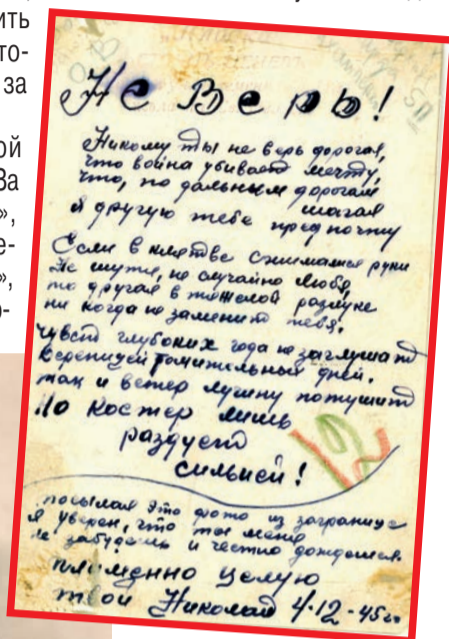 ить
то-
за
ой
За
»,
е-
»,
о-
Не Верь!
Никому ты не верь дорогая,
что война убивает мечту,
что, по дальним дорогам
шагая
я другую тебе предпочту
Если в клятве сжимались руки
Не шутя, не случайно любя,
то другая в тяжелой разлуке
ни когда не заменит тебя.
Чувств глубоких года не заглушат
Вереницей томительных дней.
так и ветер лучину потушит
Но костер лишь
раздует
сильней!
посылая это фото из заграницы
я уверен, что ты меня
не забудешь и честно дождешся.
пламенно целую
твой Николай 4.12-45г
12